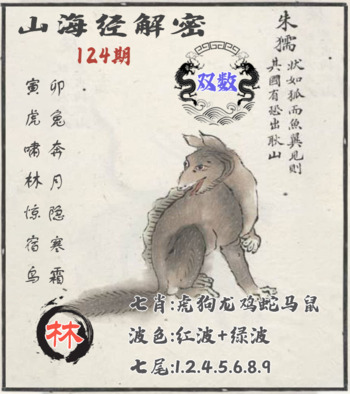 山海经解密
124期
双数
朱獳
状如狐而魚翼見則
其國有恐出耿山
卯兔奔月隐寒霜
寅虎啸林惊宿鸟
林
七肖:虎狗龙鸡蛇马鼠
波色:红波+绿波
七尾:1.2.4.5.6.8.9